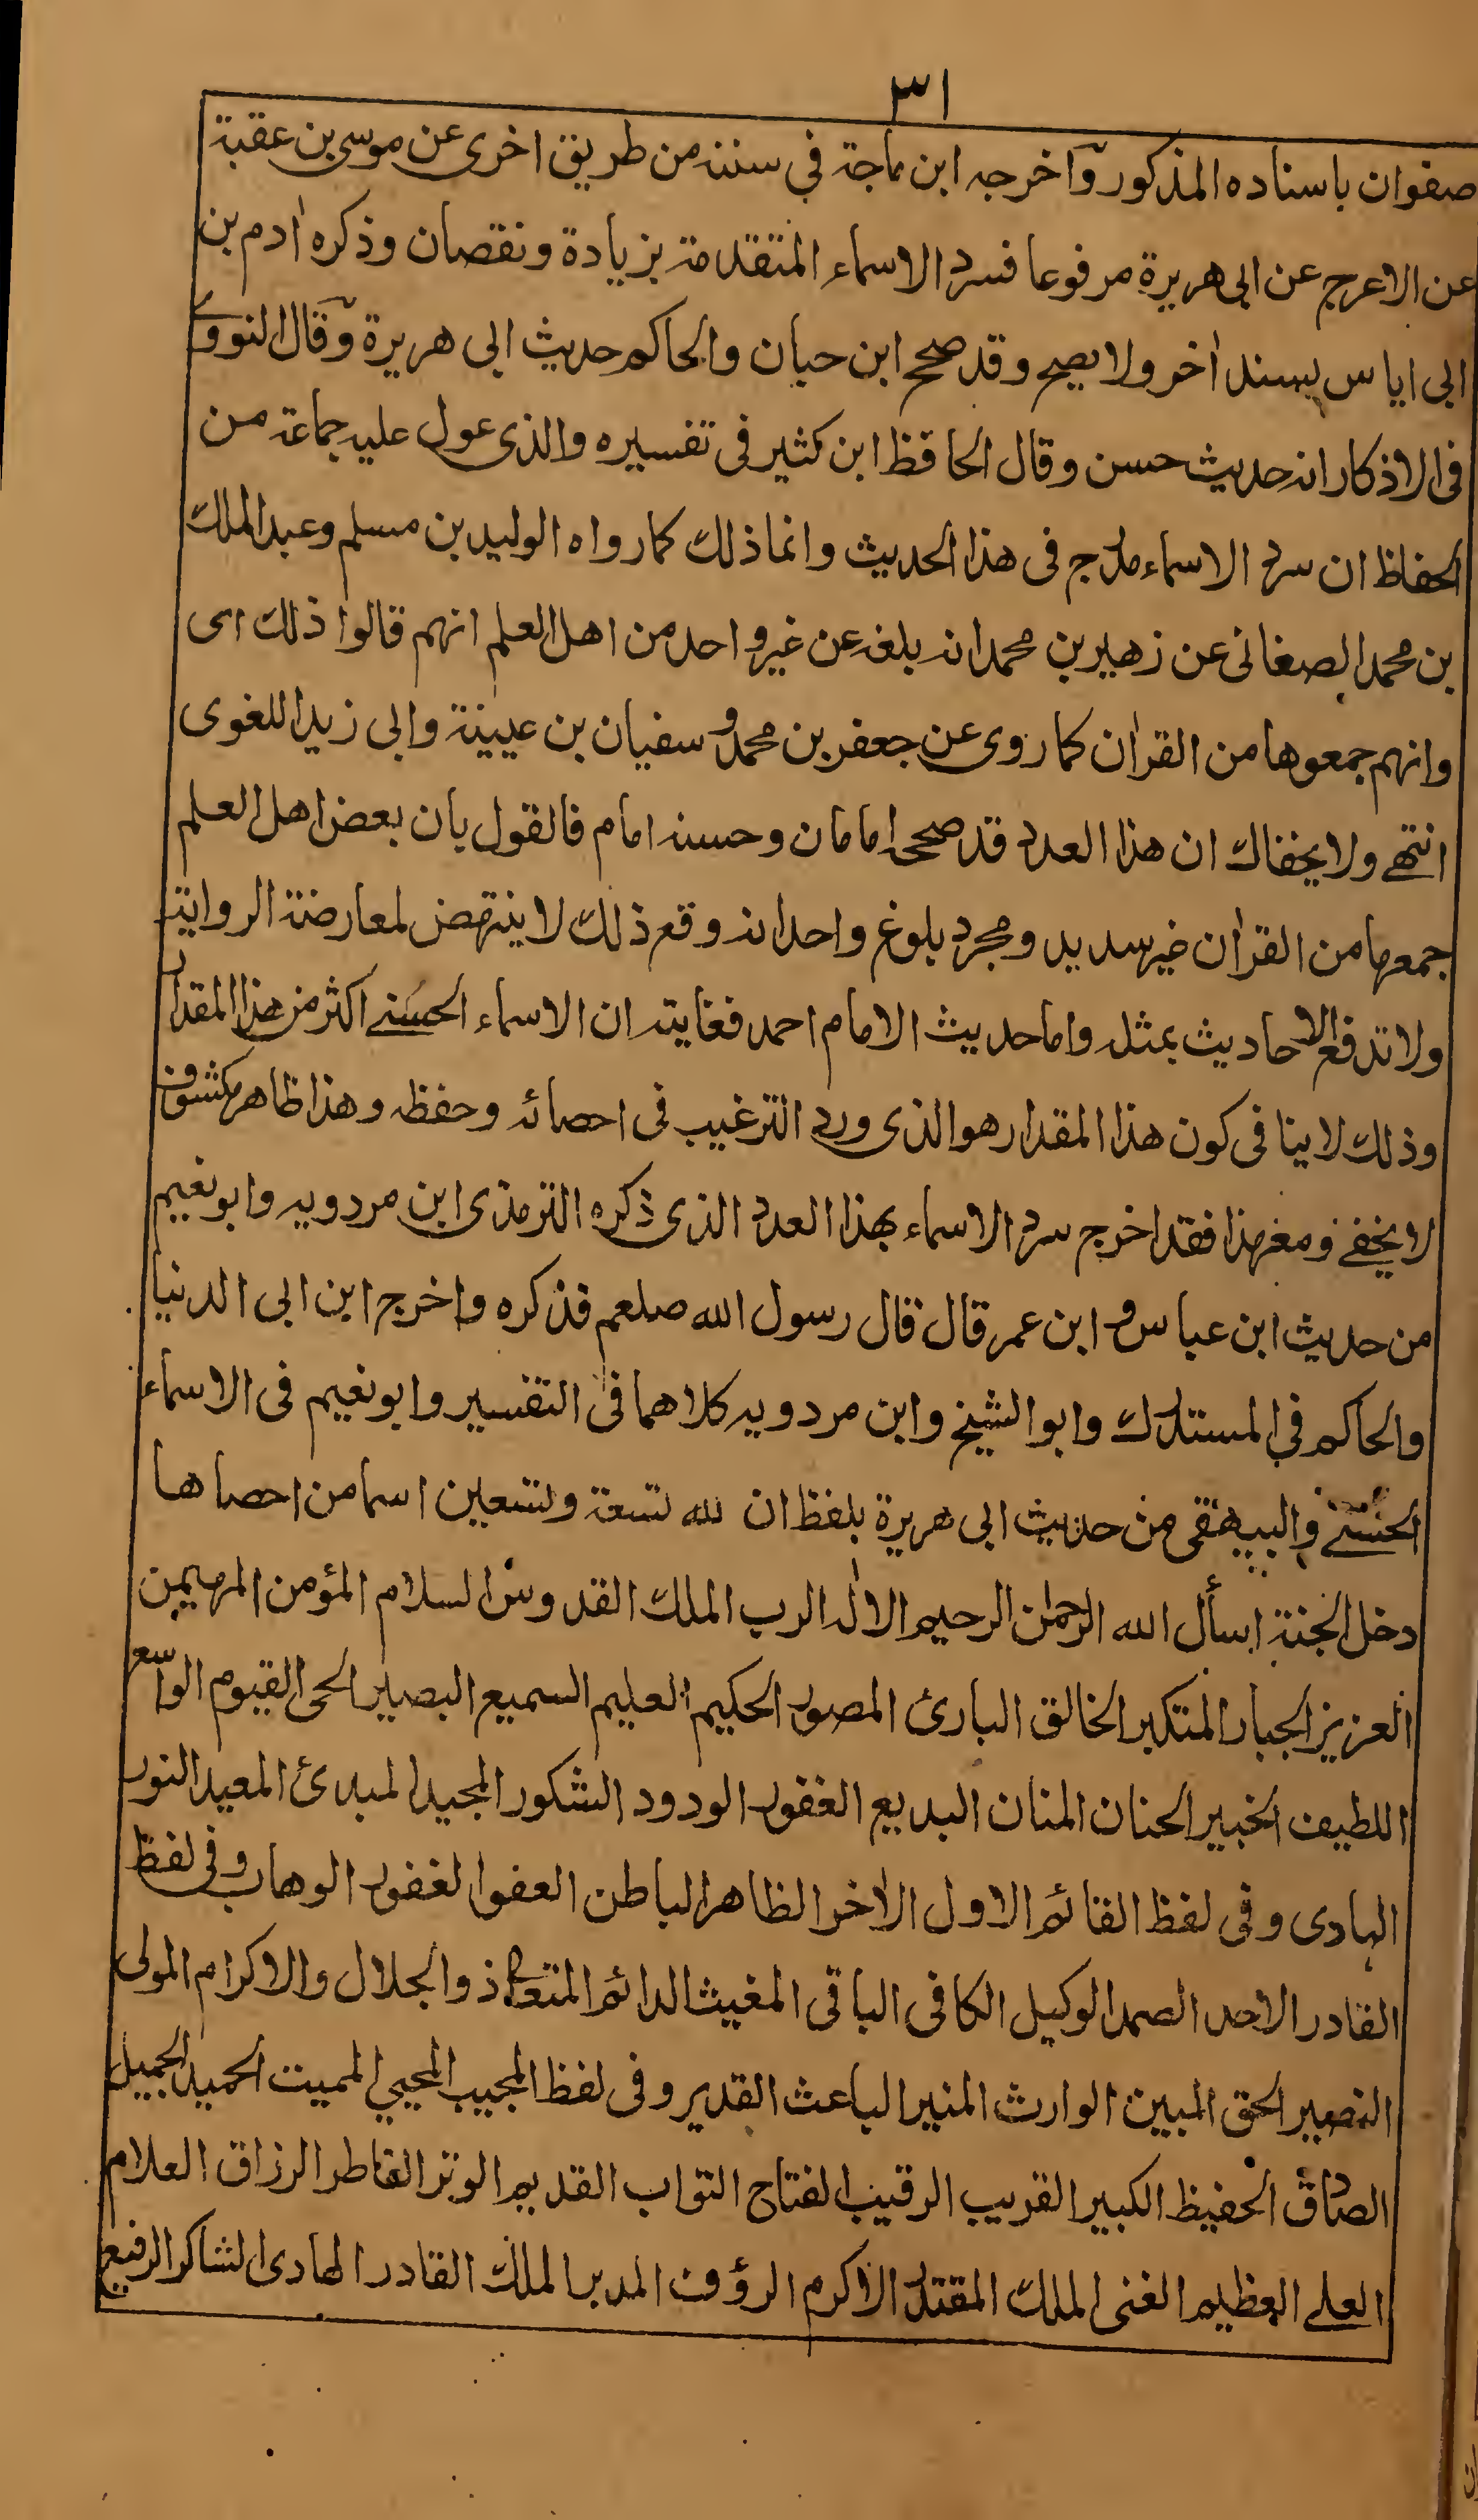 ٣١
صفوان باسناده المذكور وآخرجه ابن ماجة في سننه من طريق اخرى عن موسى بن عقبة
عن الاعرج عن ابى هريرة مرفوعا فسرد الاسماء المتقدمة بزيادة ونقصان وذكره اٰدم بن
ابى اياس بسند اٰخر ولا يصح وقد صحح ابن حبان والحاكم حديث ابى هريرة وقال النووى
فى الاذكار انه حديث حسن وقال الحافظ ابن كثير فى تفسيره والذى عول عليه جماعة من
الحفاظ ان سرد الاسماء مدرج فى هذا الحديث وانما ذلك كما رواه الوليد بن مسلم وعبد الملك
بن محمد الصغانى عن زهير بن محمد انه بلغه عن غير واحد من اهل العلم انهم قالوا ذلك اى
وانهم جمعوها من القراٰن كما روى عن جعفر بن محمد و سفيان بن عيينة وابى زيد اللغوى
انتهے ولا يخفاك ان هذا العدد قد صححه امامان وحسنه امام فالقول بان بعض اهل العلم
جمعها من القراٰن غير سديد ومجرد بلوغ واحد انه وقع ذلك لا ينتهض لمعارضة الرواية
ولا تدفع الاحاديث بمثله واما حديث الامام احمد فغايته ان الاسماء الحسنے اكثر من هذا المقدار
وذلك لا ينافى كون هذا المقدار هو الذى ورد الترغيب فى احصائه وحفظه وهذا ظاهر مكشوف
لا يخفے ومع هذا فقد اخرج سرد الاسماء بهذا العدد الذى ذكره الترمذى ابن مردويه وابو نعيم
من حديث ابن عباس و ابن عمر قال قال رسول الله صلعم فذكره واخرج ابن ابى الدنيا
والحاكم فى المستدرك وابو الشيخ وابن مردويه كلاهما فى التفسير وابو نعيم فى الاسماء
الحسنے والبيهقى من حديث ابى هريرة بلفظ ان لله تسعة وتسعين اسما من احصاها
دخل الجنة اسأل الله الرحمٰن الرحيم الالٰه الرب الملك القدوس السلام المؤمن المهيمن
العزيز الجبار المتكبر الخالق البارئ المصور الحكيم العليم السميع البصير الحى القيوم الواسع
اللطيف الخبير الحنان المنان البديع الغفور الودود الشكور المجيد المبدئ المعيد النور
الهادى وفى لفظ القائم الاول الاٰخر الظاهر الباطن العفو الغفور الوهاب وفى لفظ
القادر الاحد الصمد الوكيل الكافى الباقى المغيث الدائم المتعال ذو الجلال والاكرام المولى
النصير الحق المبين الوارث المنير الباعث القدير وفى لفظ المجيب المحيي المميت الحميد الجميل
الصادق الحفيظ الكبير القريب الرقيب الفتاح التواب القديم الوتر الفاطر الرزاق العلام
العلے العظيم الغنى الملك المقتدر الاكرم الرؤف المدبر الملك القادر الهادى الشاكر الرفيع